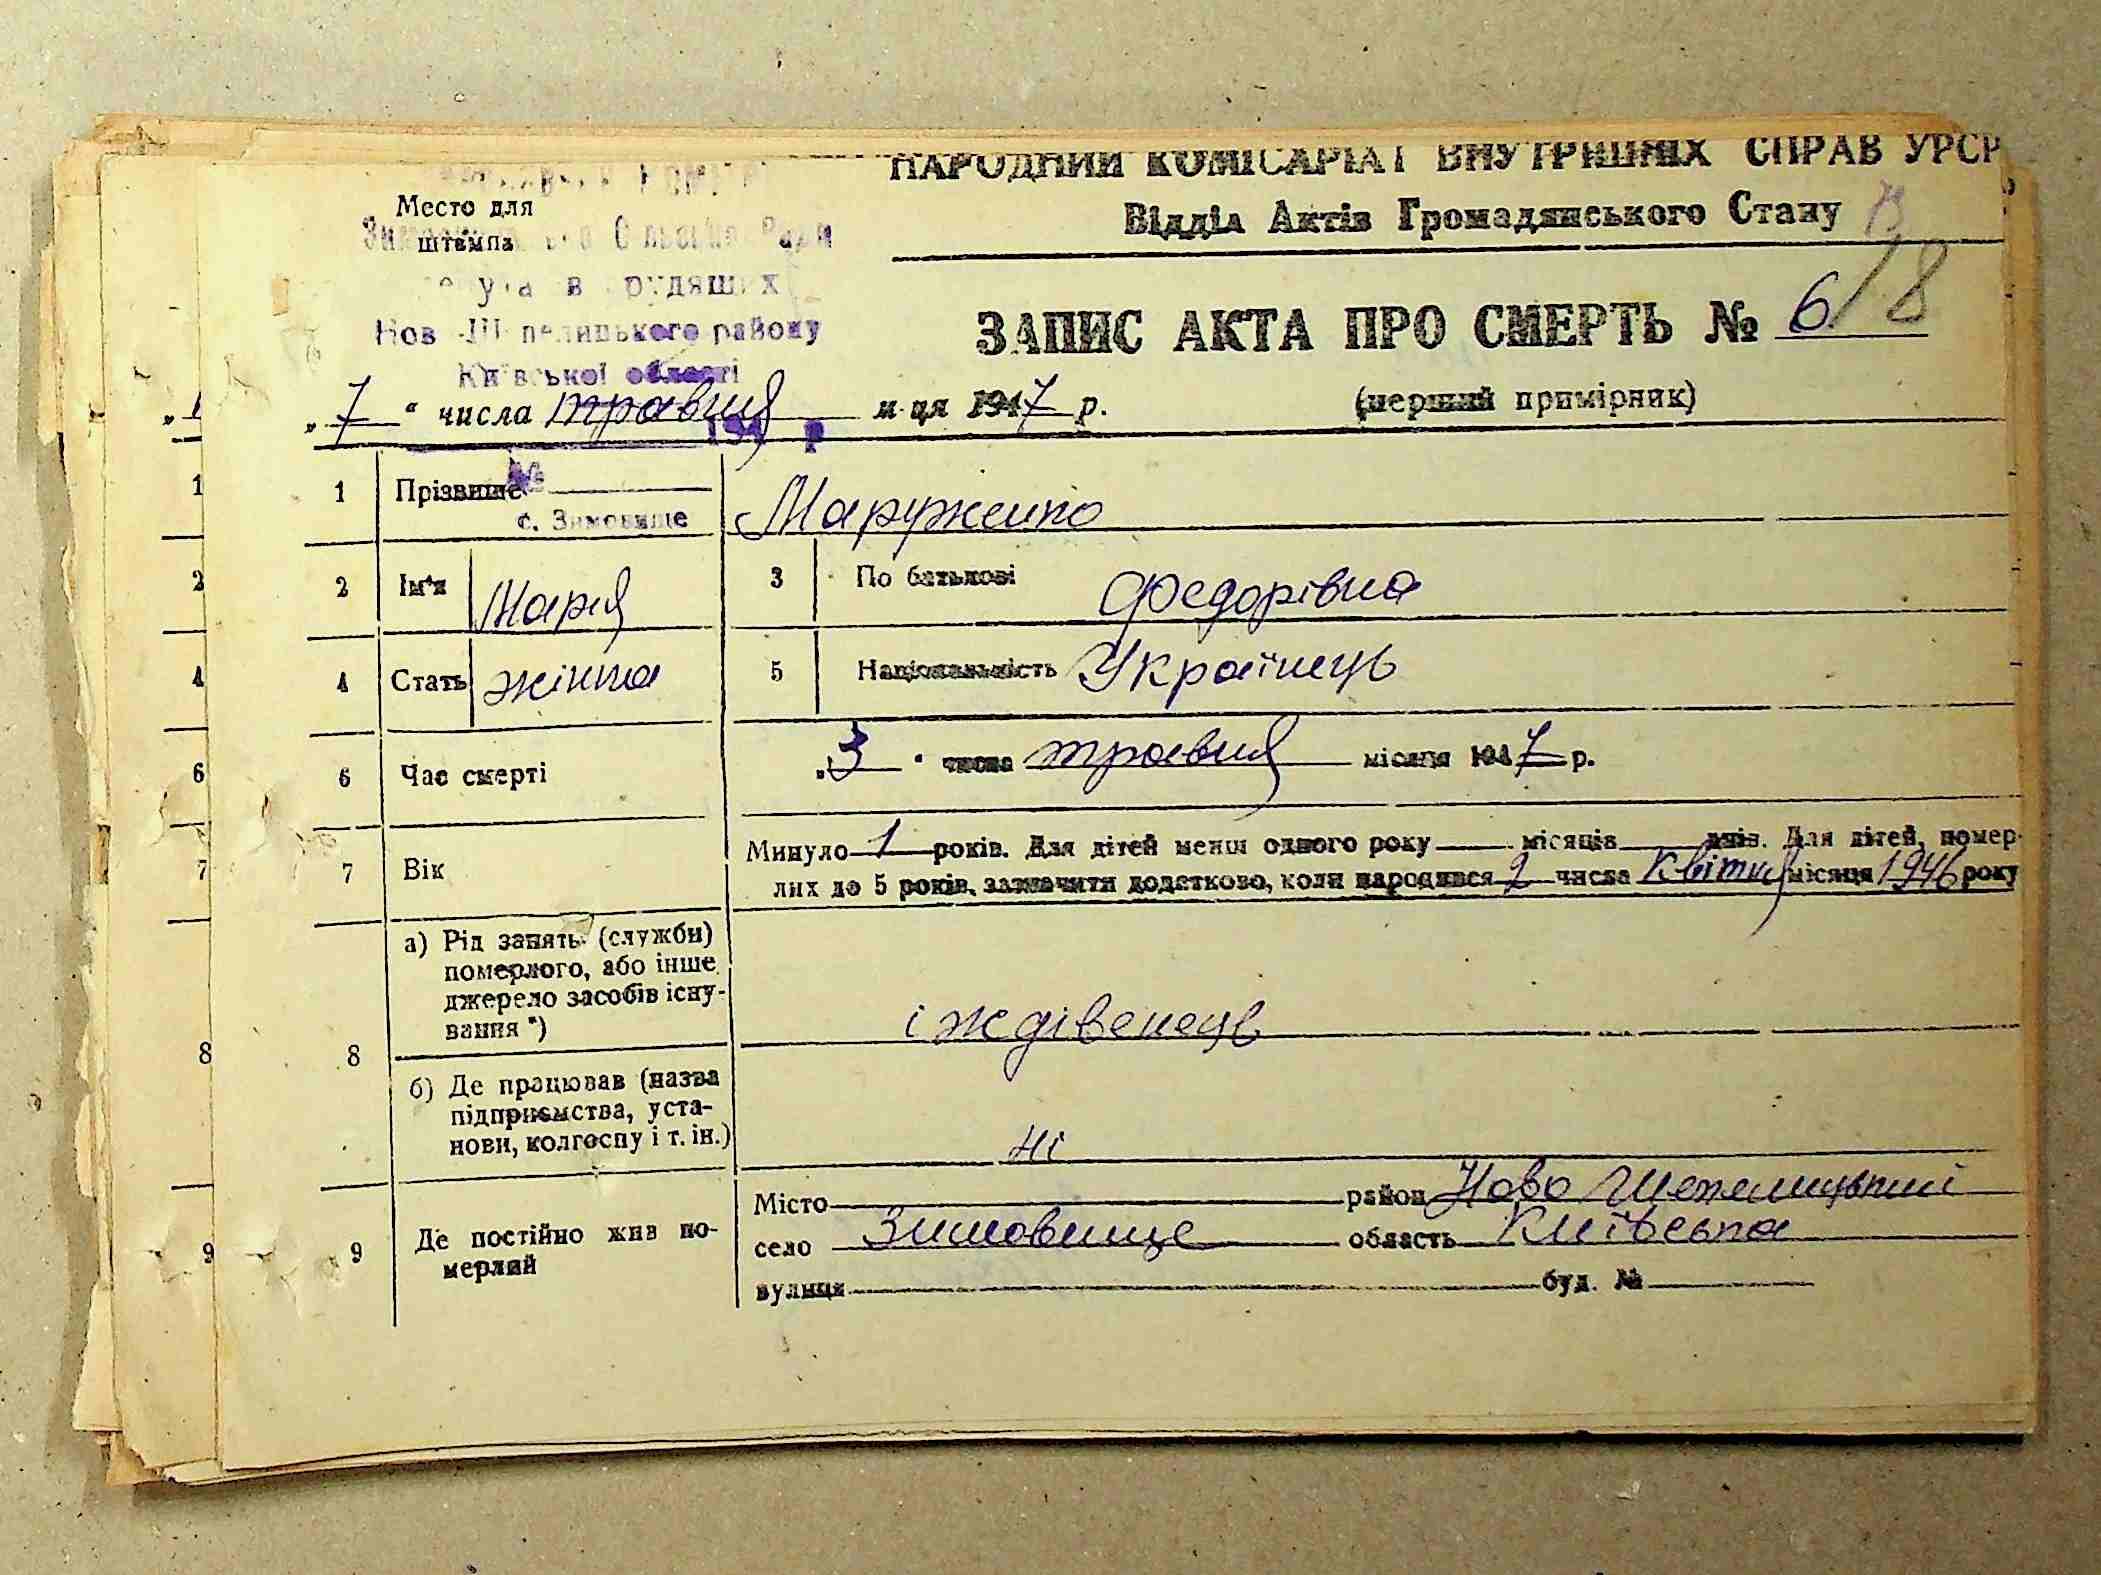 НАРОДНИЙ КОМІСАРІАТ ВНУТРІШНІХ СПРАВ УРСР
Відділ Актів Громадянського Стану
Место для
штампа
Сільські Ради
трудящих
Нов Шепелицького району
Київської області
ЗАПИС АКТА ПРО СМЕРТЬ № 6/8
(перший примірник)
„ 7 “ числа травня м-ця 1947 р.
194 р
№
с. Зимовище
1 Прізвище Маруженко
2 Ім'я Марія 3 По батькові Федорівна
4 Стать жінка 5 Національність Українець
6 Час смерті „3“ числа травня місяця 1947 р.
7 Вік Минуло 1 років. Для дітей менш одного року місяців днів. Для дітей, помер-
лих до 5 років, зазначити додатково, коли народився 2 числа квітня місяця 1946 року
8 а) Рід занять (служби)
померлого, або інше
джерело засобів існу-
вання *)
іждівенець
б) Де працював (назва
підприємства, уста-
нови, колгоспу і т. ін.)
ні
9 Де постійно жив по-
мерлий
Місто район Ново Шепелицький
село Зимовище область Київська
вулиця буд. №
1
2
4
6
7
8
9